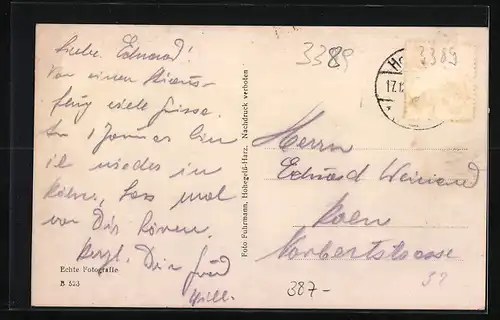 Lieber Eduard!
Von einem
flug viele Grüsse.
Im Januar bin
ich wieder in
Köln. Lass mal
von Dir hören.
Herzl. Dein Freund
Willi.
Echte Fotografie
B 523
Foto Fuhrmann, Hohegeiß-Harz. Nachdruck verboten
3389
3389
Ho
17.1
Herrn
Eduard
Koeln
Norbertstrasse
32
387-